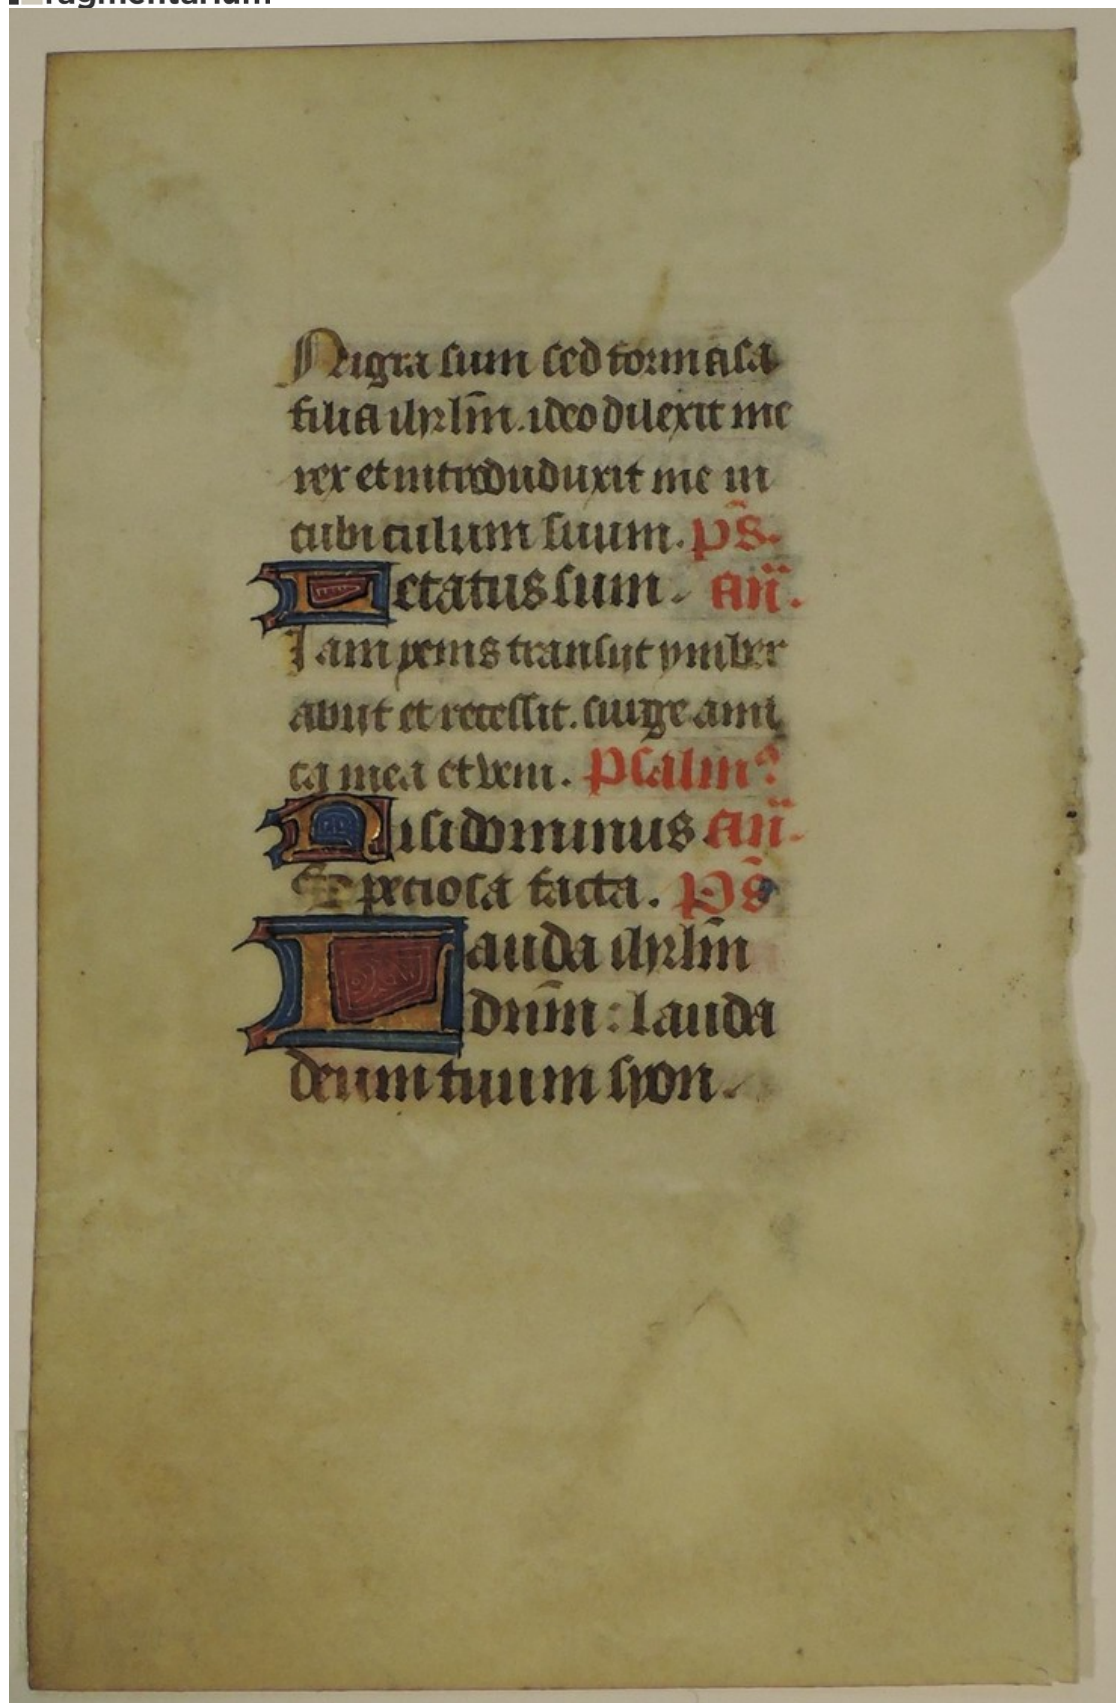 fragmentarium
Nigra sum sed formosa
filia ihrlm̄. ideo dilexit me
rex et introduduxit me in
cubiculum suum. ps̄.
Letatus sum. an̄.
Iam yems transiit ymber
abiit et recessit. surge ami
ca mea et veni. Psalmꝰ
Nisi dominus an̄.
Speciosa facta. Ps̄
Lauda ihrlm̄
dnm̄: lauda
deum tuum syon.